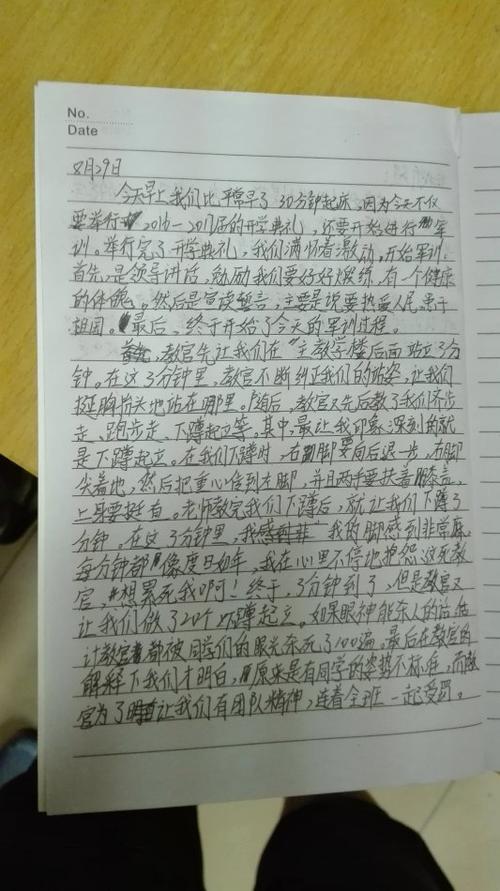 No.
Date
8月29日
今天早上我们比平常早了30分钟起床,因为今天不仅
要举行2016-2017届的开学典礼,还要开始进行军
训。举行完了开学典礼,我们满怀着激动,开始军训.
首先,是领导讲话,勉励我们要好好锻练,有一个健康
的体魄。然后是宣读誓言,主要是说要热爱人民,忠于
祖国。最后,终于开始了今天的军训过程。
教官先让我们在"主教学楼后面站立3分
钟。在这3分钟里,教官不断纠正我们的站姿,让我们
挺胸抬头地站在哪里。随后,教官又先后教了我们齐步
走、跑步走、下蹲起立等。其中,最让我印象深刻的就
是下蹲起立。在我们下蹲时,右脚要向后退一步,右脚
尖着地,然后把重心住到右脚,并且两手要扶着膝盖,
上身要挺直。老师教完我们下蹲后,就让我们下蹲3
分钟。在这3分钟里,我的脚感到非常麻,
每分钟都像度日如年,我在心里不停地抱怨这死教
官,想累死我啊!终于,3分钟到了,但是教官又
让我们做了20个下蹲起立。如果眼神能杀人的话,估
计教官都被同学们的眼光杀死了100遍。最后在教官的
解释下我们才明白,原来是有同学的姿势不标准,而教
官为了让我们有团队精神,连着全班一起受罚。